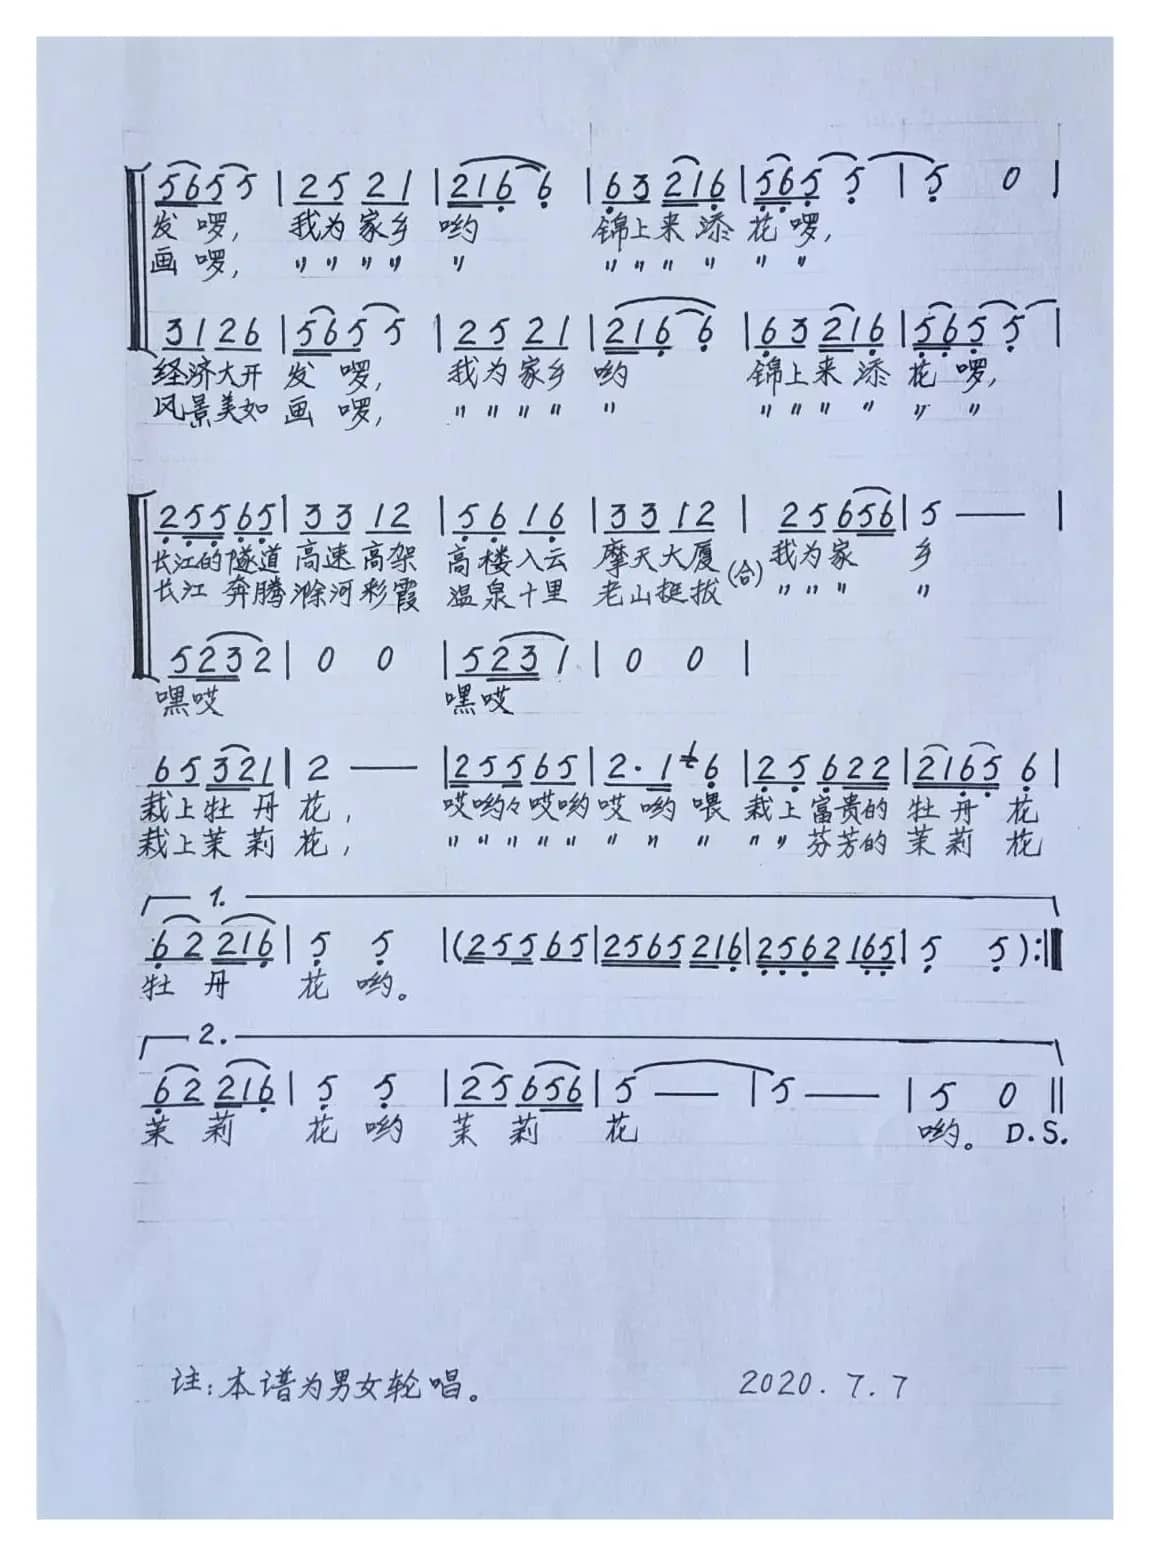 5655 | 25 21 | 216 6 | 63 216 | 565 5 | 5 0 |
发 啰, 我为家乡 哟 锦上来添 花 啰,
画 啰, 〃 〃 〃 〃 〃 〃 〃 〃 〃 〃 〃
31 26 | 565 5 | 25 21 | 216 6 | 63 216 | 565 5 |
经济大开 发 啰, 我为家乡 哟 锦上来添 花 啰,
风景美如 画 啰, 〃 〃 〃 〃 〃 〃 〃 〃 〃 〃 〃
255 65 | 33 12 | 56 16 | 33 12 | 25 656 | 5 — |
长江的隧道 高速高架 高楼入云 摩天大厦 (合) 我为家 乡
长江 奔腾 滁河彩霞 温泉十里 老山挺拔 〃 〃 〃 〃
5232 | 0 0 | 5231 | 0 0 |
嘿哎 嘿哎
65 321 | 2 — | 255 65 | 2· 1 6 | 25 622 | 2165 6 |
栽上牡丹 花, 哎哟々哎哟 哎 哟 喂 栽上富贵的 牡丹 花
栽上茉莉 花, 〃 〃 〃 〃 〃 〃 〃 〃 〃 〃 芬芳的 茉莉 花
1.
62 216 | 5 5 | (255 65 | 2565 216 | 2562 165 | 5 5 ) :||
牡 丹 花 哟。
2.
62 216 | 5 5 | 25 656 | 5 — | 5 — | 5 0 ||
茉 莉 花 哟 茉 莉 花 哟。 D.S.
注:本谱为男女轮唱。 2020.7.7